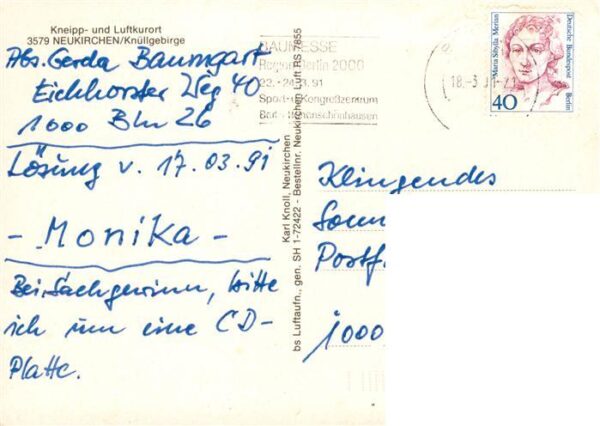 Kneipp- und Luftkurort
3579 NEUKIRCHEN/Knüllgebirge
Abs. Gerda Baumgart
Eichhorster Weg 40
1000 Bln 26
Lösung v. 17.03.91
- Monika -
Bei Sachgewinn, bitte
ich um eine CD-
Platte.
Karl Knoll, Neukirchen
bs Luftaufn., gen. SH 1-72422 - Bestellnr. Neukirchen Luft RS 7855
BAUMESSE
Region Berlin 2000
22.-24.3.91
Sport- u. Kongreßzentrum
Bln.-Hohenschönhausen
18.-3.91-21
Maria Sibylla Merian
Deutsche Bundespost Berlin
40
Klingendes
Sonn
Postf
1000